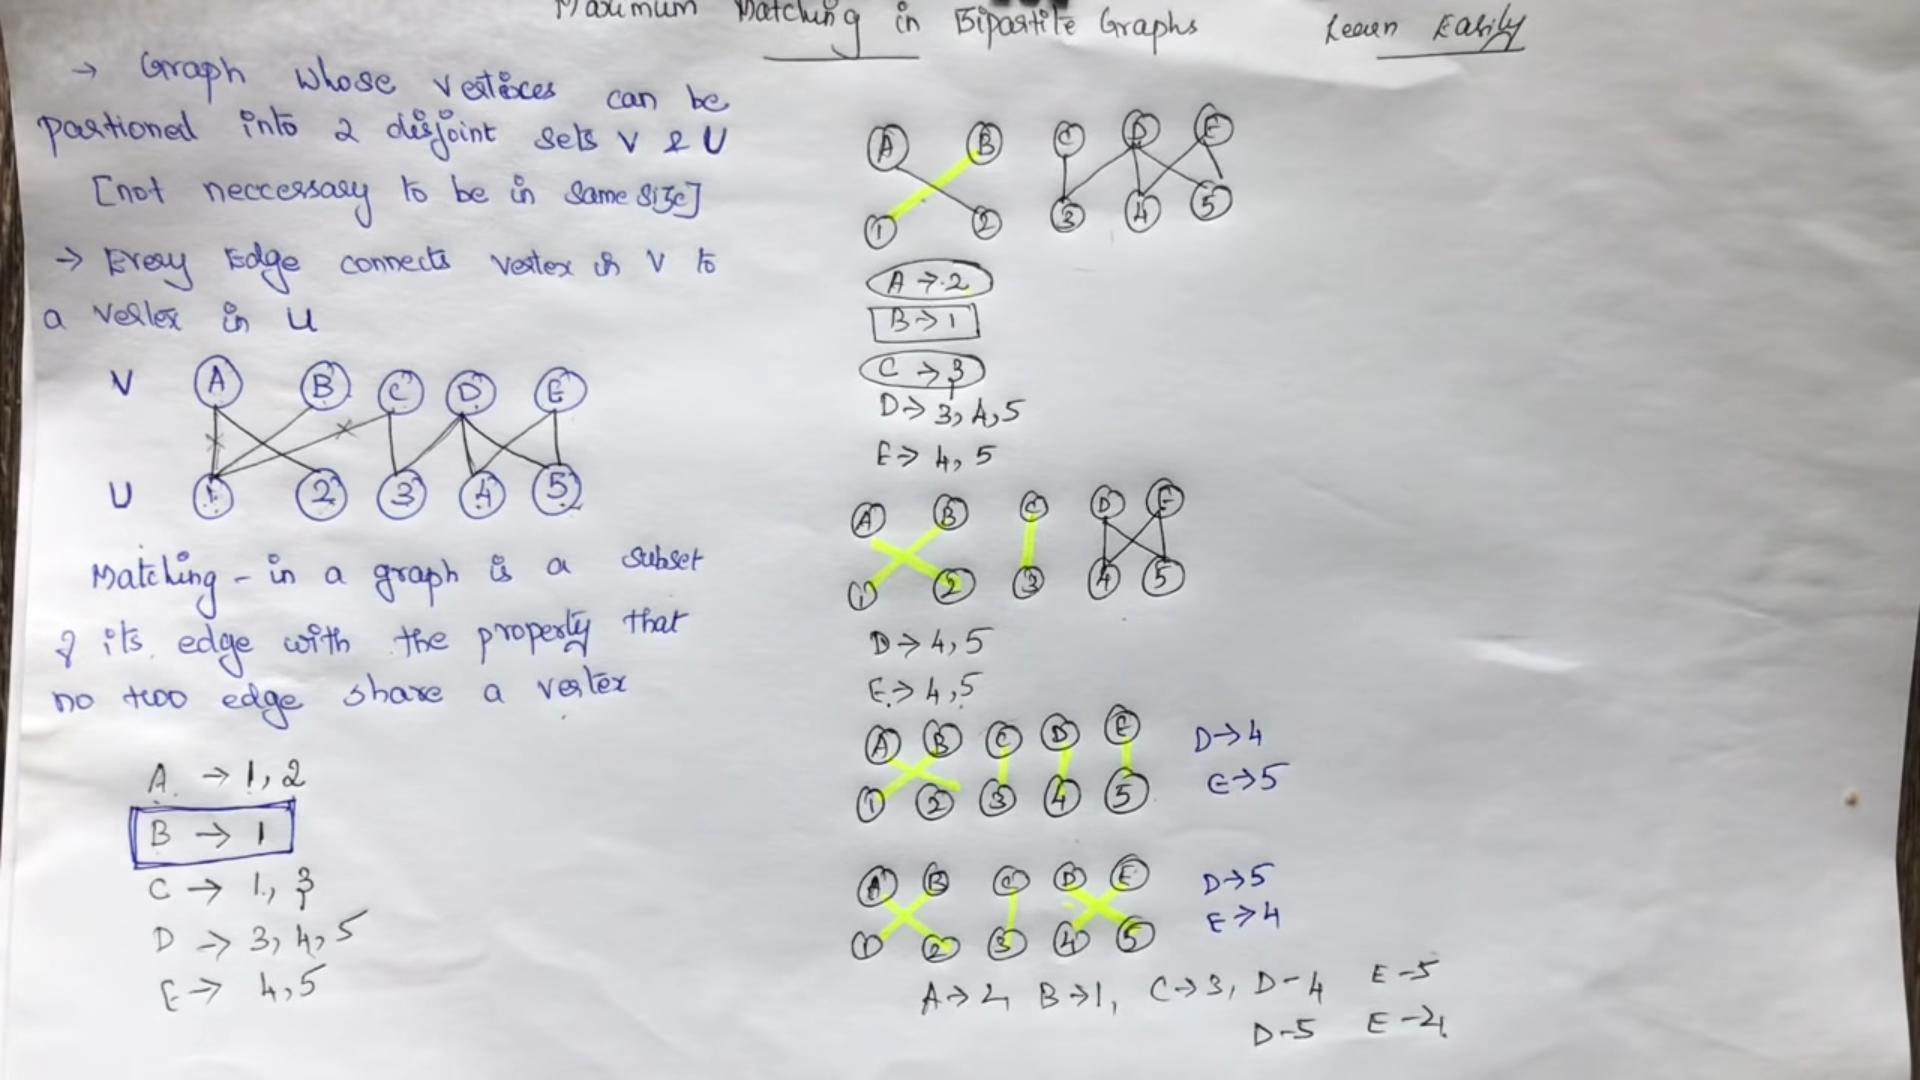 Maximum Matching in Bipartite Graphs
Learn Easily
→ Graph whose vertices can be
partioned into 2 disjoint sets V & U
[not neccessary to be in same size]
→ Every Edge connects vertex in V to
a vertex in U
V A B C D E
U 1 2 3 4 5
Matching - in a graph is a subset
of its edge with the property that
no two edge share a vertex
A → 1, 2
B → 1
C → 1, 3
D → 3, 4, 5
E → 4, 5
A B C D E
1 2 3 4 5
A → 2
B → 1
C → 3
D → 3, 4, 5
E → 4, 5
A B C D E
1 2 3 4 5
D → 4, 5
E → 4, 5
A B C D E
1 2 3 4 5
D → 4
E → 5
A B C D E
1 2 3 4 5
D → 5
E → 4
A → 2, B → 1, C → 3, D - 4 E - 5
D - 5 E - 4